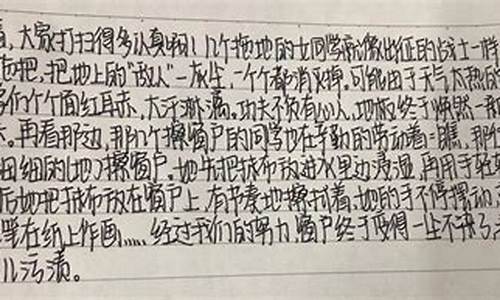 看,大家打扫得多认真啊!几个拖地的女同学就像出征的战士一样
拖把,把地上的“敌人”——灰尘,一个个都消灭掉。可能由于天气太热的
们个个面红耳赤,大汗淋漓。功夫不负有心人,地板终于焕然一新
再看那边,那几个擦窗户的同学也在辛勤的劳动着:瞧,那
细细的(地)擦窗户。她先把抹布放进水里边浸湿,再用手
后她把抹布放在窗户上,有节奏地擦拭着,她的手不停摆动
笔在纸上作画……经过我们的努力,窗户终于变得一尘不染了
儿污渍。